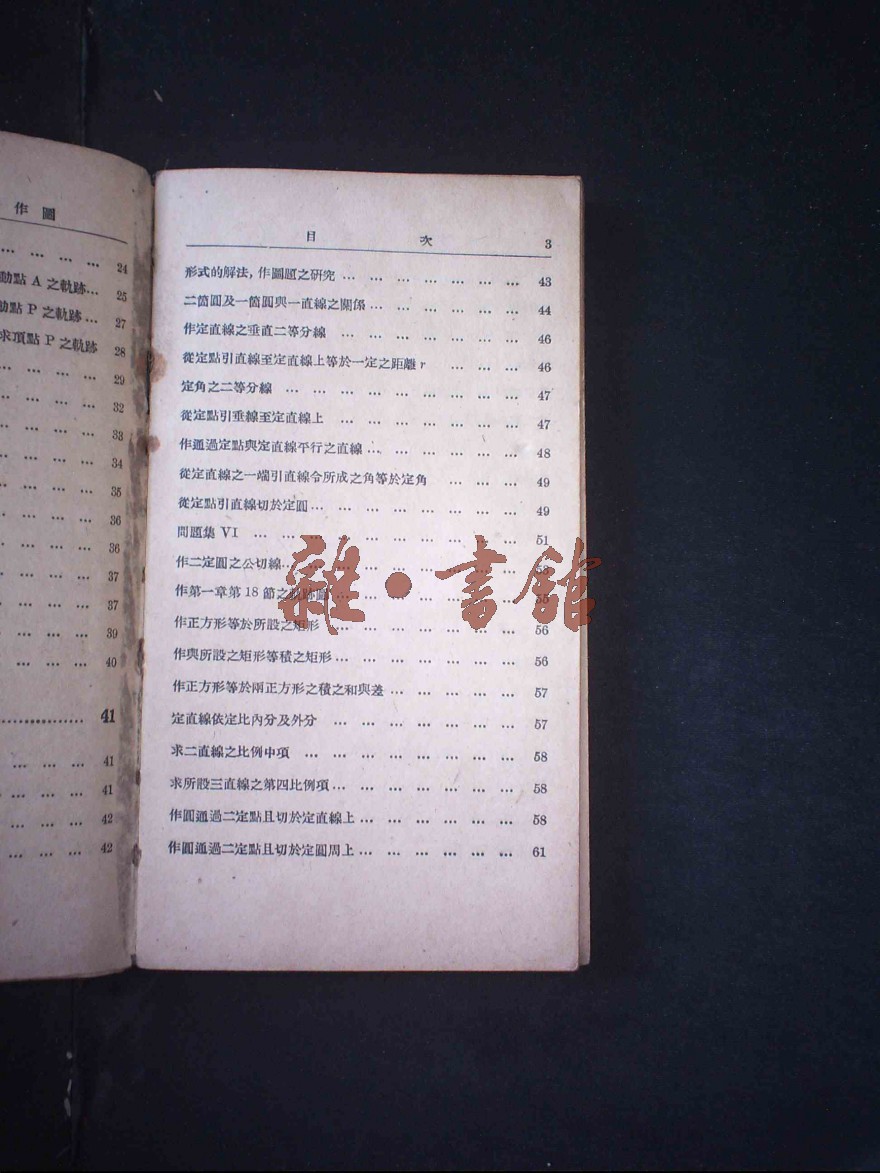 作圖
… … … … 24
動點 A 之軌跡… 25
動點 P 之軌跡… 27
求頂點 P 之軌跡 28
… … … … 29
… … … … 32
… … … … 33
… … … … 34
… … … … 35
… … … … 36
… … … … 36
… … … … 37
… … … … 37
… … … … 39
… … … … 40
……………… 41
… … … … 41
… … … … 41
… … … … 42
… … … … 42
目 次 3
形式的解法，作圖題之研究 … … … … … … … 43
二箇圓及一箇圓與一直線之關係… … … … … … 44
作定直線之垂直二等分線 … … … … … … … 46
從定點引直線至定直線上等於一定之距離 r … … … 46
定角之二等分線 … … … … … … … … … 47
從定點引垂線至定直線上 … … … … … … … 47
作通過定點與定直線平行之直線… … … … … … 48
從定直線之一端引直線令所成之角等於定角 … … … 49
從定點引直線切於定圓… … … … … … … … 49
問題集 VI … … … … … … … … … … 51
作二定圓之公切線… … … … … … … … …
作第一章第 18 節之軌跡圖 … … … … … … … 55
作正方形等於所設之矩形 … … … … … … … 56
作與所設之矩形等積之矩形… … … … … … … 56
作正方形等於兩正方形之積之和與差 … … … … … 57
定直線依定比內分及外分 … … … … … … … 57
求二直線之比例中項 … … … … … … … … 58
求所設三直線之第四比例項… … … … … … … 58
作圓通過二定點且切於定直線上… … … … … … 58
作圓通過二定點且切於定圓周上… … … … … … 61
雜·書館